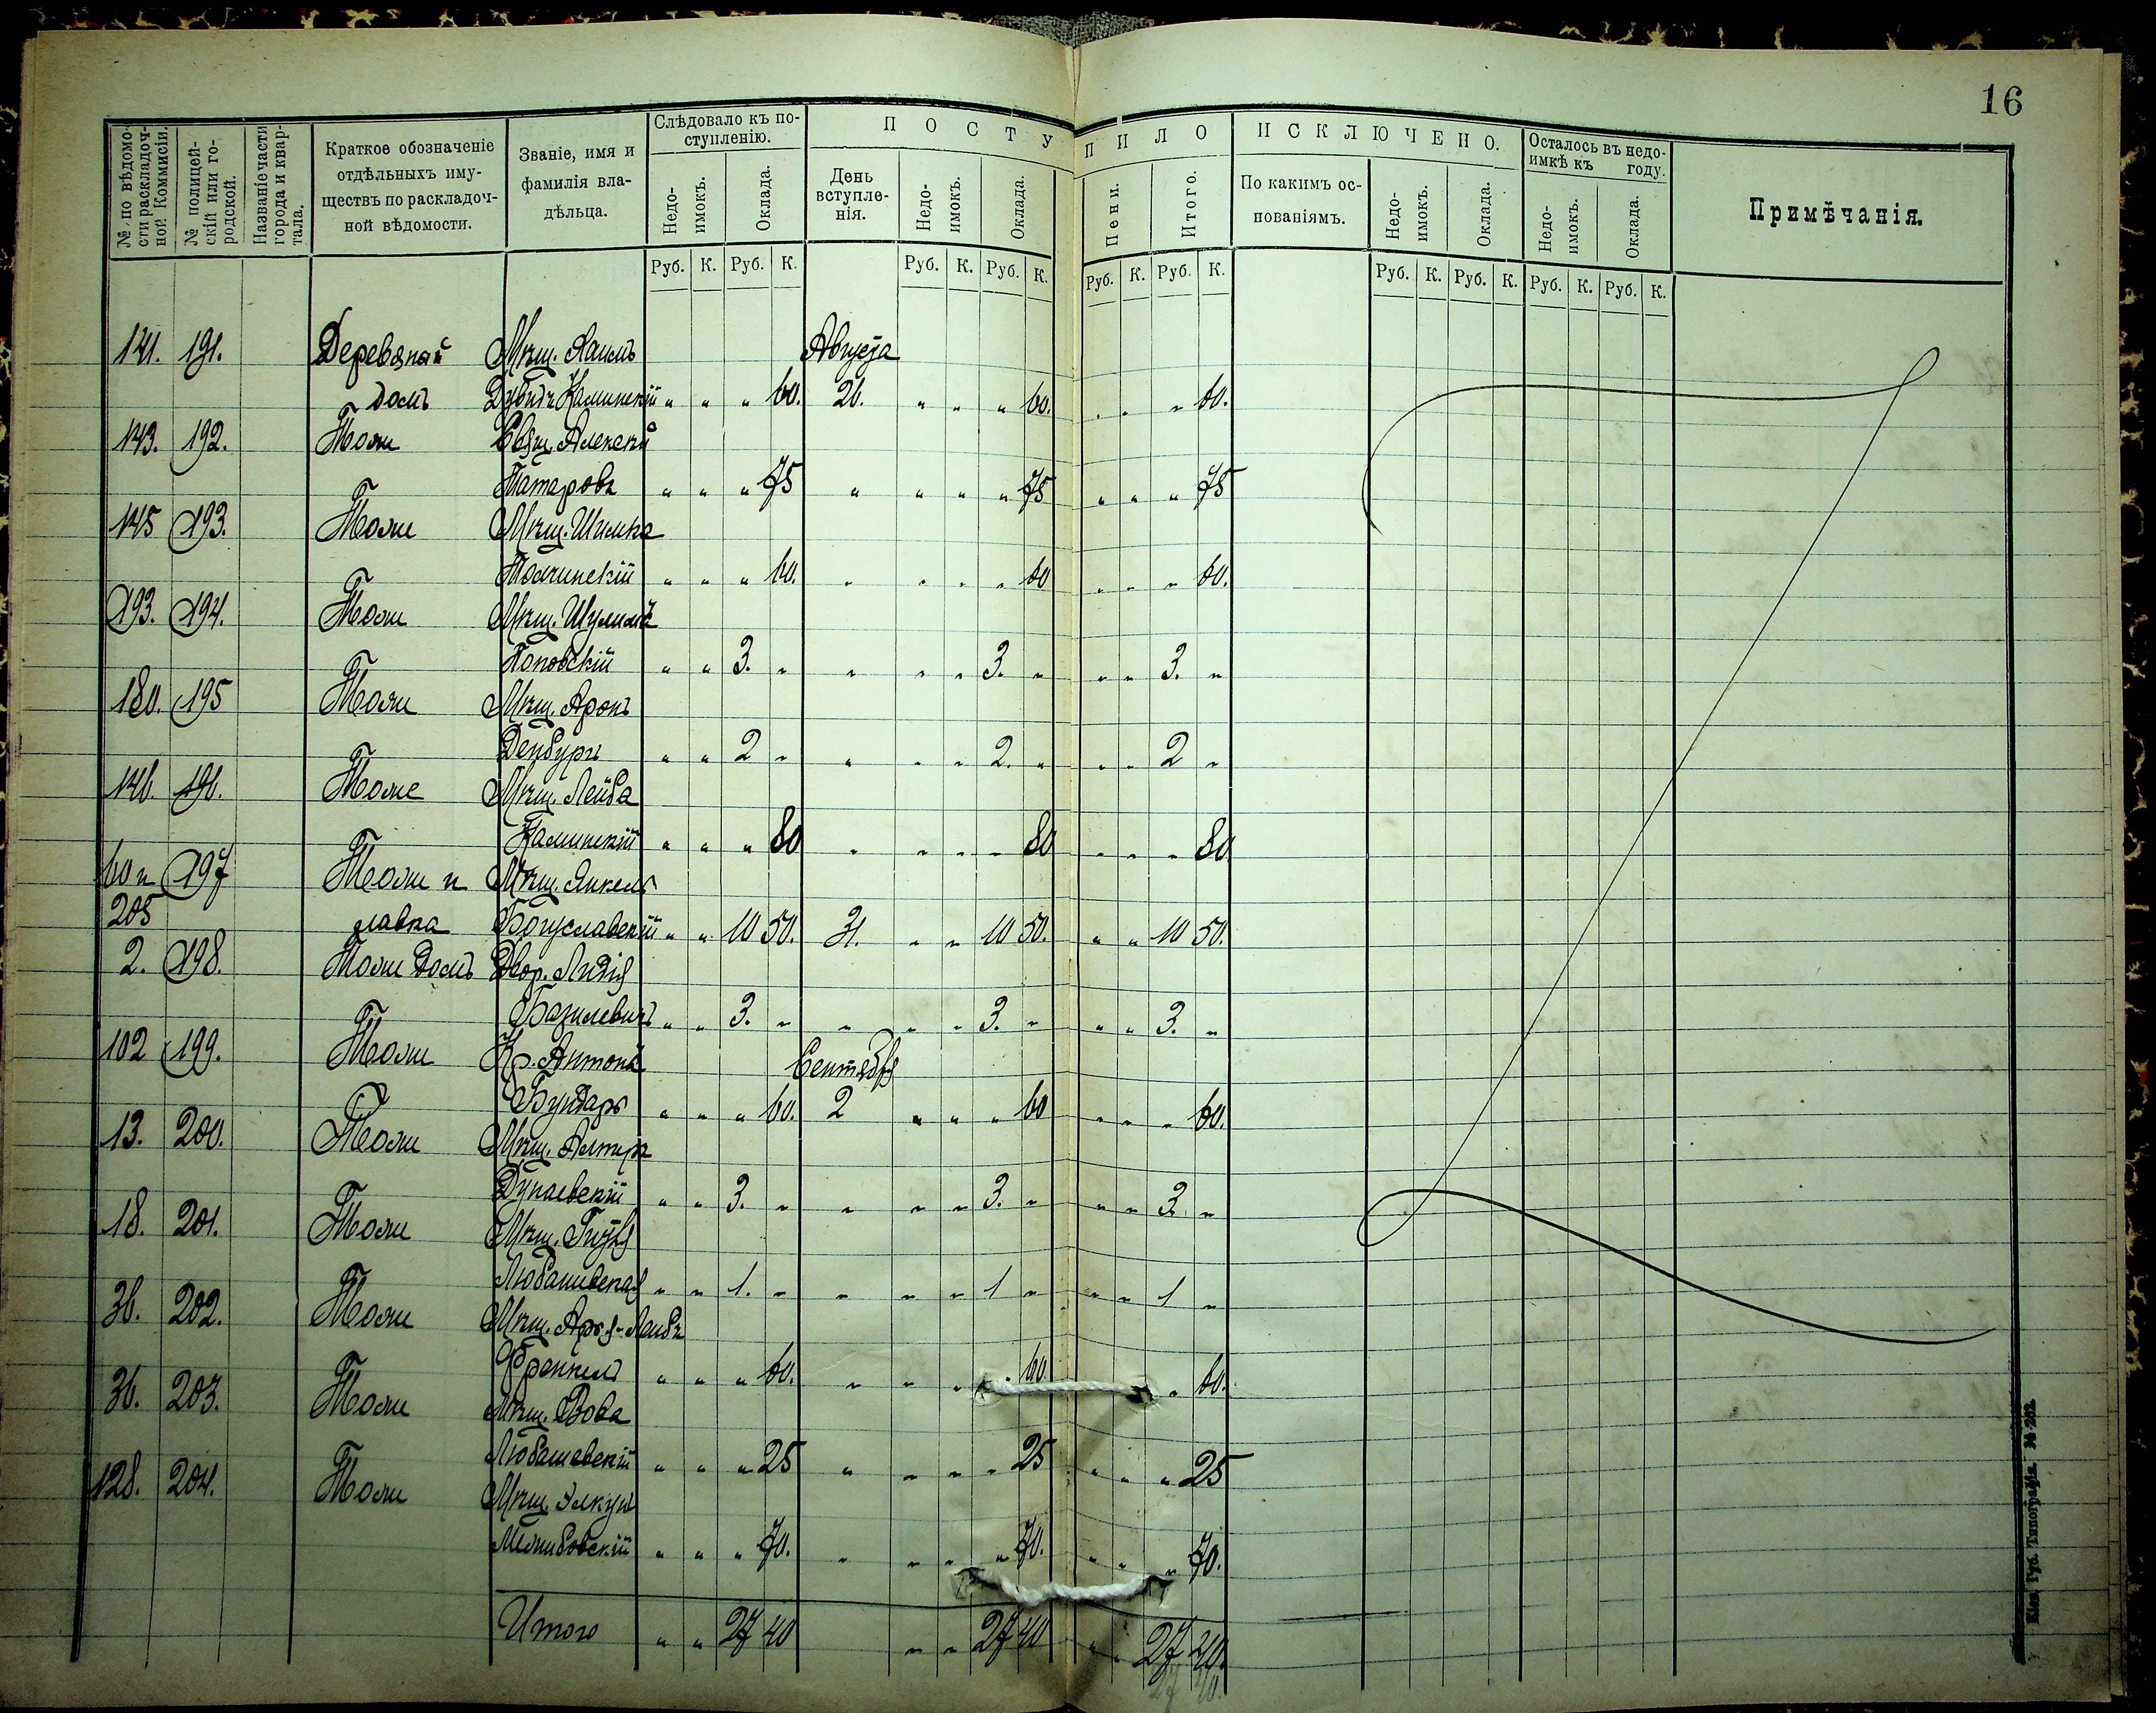 16
№ по вѣдомости раскладочной Коммисіи.
№ полицейскій или городской.
Названіе части города и квартала.
Краткое обозначеніе отдѣльныхъ имуществъ по раскладочной вѣдомости.
Званіе, имя и фамилія владѣльца.
Слѣдовало къ поступленію.
Недоимокъ. Оклада.
ПОСТУПИЛО
День вступленія. Недоимокъ. Оклада. Пени. Итого.
ИСКЛЮЧЕНО.
По какимъ основаніямъ. Недоимокъ. Оклада.
Осталось въ недоимкѣ къ году.
Недоимокъ. Оклада.
Примѣчанія.
Руб. К. Руб. К. Руб. К. Руб. К. Руб. К. Руб. К. Руб. К. Руб. К. Руб. К. Руб. К.
141. 191. Деревяный Мѣщ. Хаимъ Августа
домъ Каминскій „ „ „ 60. 26. „ „ „ 60. „ „ „ 60.
143. 192. Тоже Свящ. Алексѣй
Татаровъ „ „ „ 75 „ „ „ „ 75 „ „ „ 75
145 193. Тоже Мѣщ. Шимка
„ „ „ 60. „ „ „ „ 60 „ „ „ 60.
193. 194. Тоже Мѣщ.
Поповскій „ „ 3. „ „ „ „ 3. „ „ „ 3. „
180. 195 Тоже Мѣщ. Аронъ
„ „ 2 „ „ „ „ 2. „ „ „ 2 „
146. 196. Тоже Мѣщ. Лейба
Каминскій „ „ „ 80 „ „ „ „ 80 „ „ „ 80
60 и 197 Тоже и Мѣщ. Янкель
205 лавка Богуславскій „ „ 10 50. 31. „ „ 10 50. „ „ 10 50.
2. 198. Тоже домъ Двор. Лидія
Базилевичъ „ „ 3. „ „ „ „ 3. „ „ „ 3. „
102 199. Тоже Кр. Антонъ Сентября
Бундарь „ „ „ 60. 2 „ „ „ 60 „ „ „ 60.
13. 200. Тоже Мѣщ. Алтеръ
Дунаевскій „ „ 3. „ „ „ „ 3. „ „ „ 3. „
18. 201. Тоже Мѣщ.
Любашевская „ „ 1. „ „ „ „ 1 „ „ „ 1 „
36. 202. Тоже Мѣщ. Арья-Лейбъ
Френкель „ „ „ 60. „ „ „ „ 60. „ 60.
36. 203. Тоже Мѣщ. Вова
Любашевскій „ „ „ 25 „ „ „ „ 25 „ „ „ 25
128. 204. Тоже Мѣщ. Элкунъ
Межибовскій „ „ „ 70. „ „ „ „ 70. „ „ „ 70.
Итого „ „ 27 40 „ „ 27 40 „ „ 27 40.
Кіев. Губ. Типографія. № 262